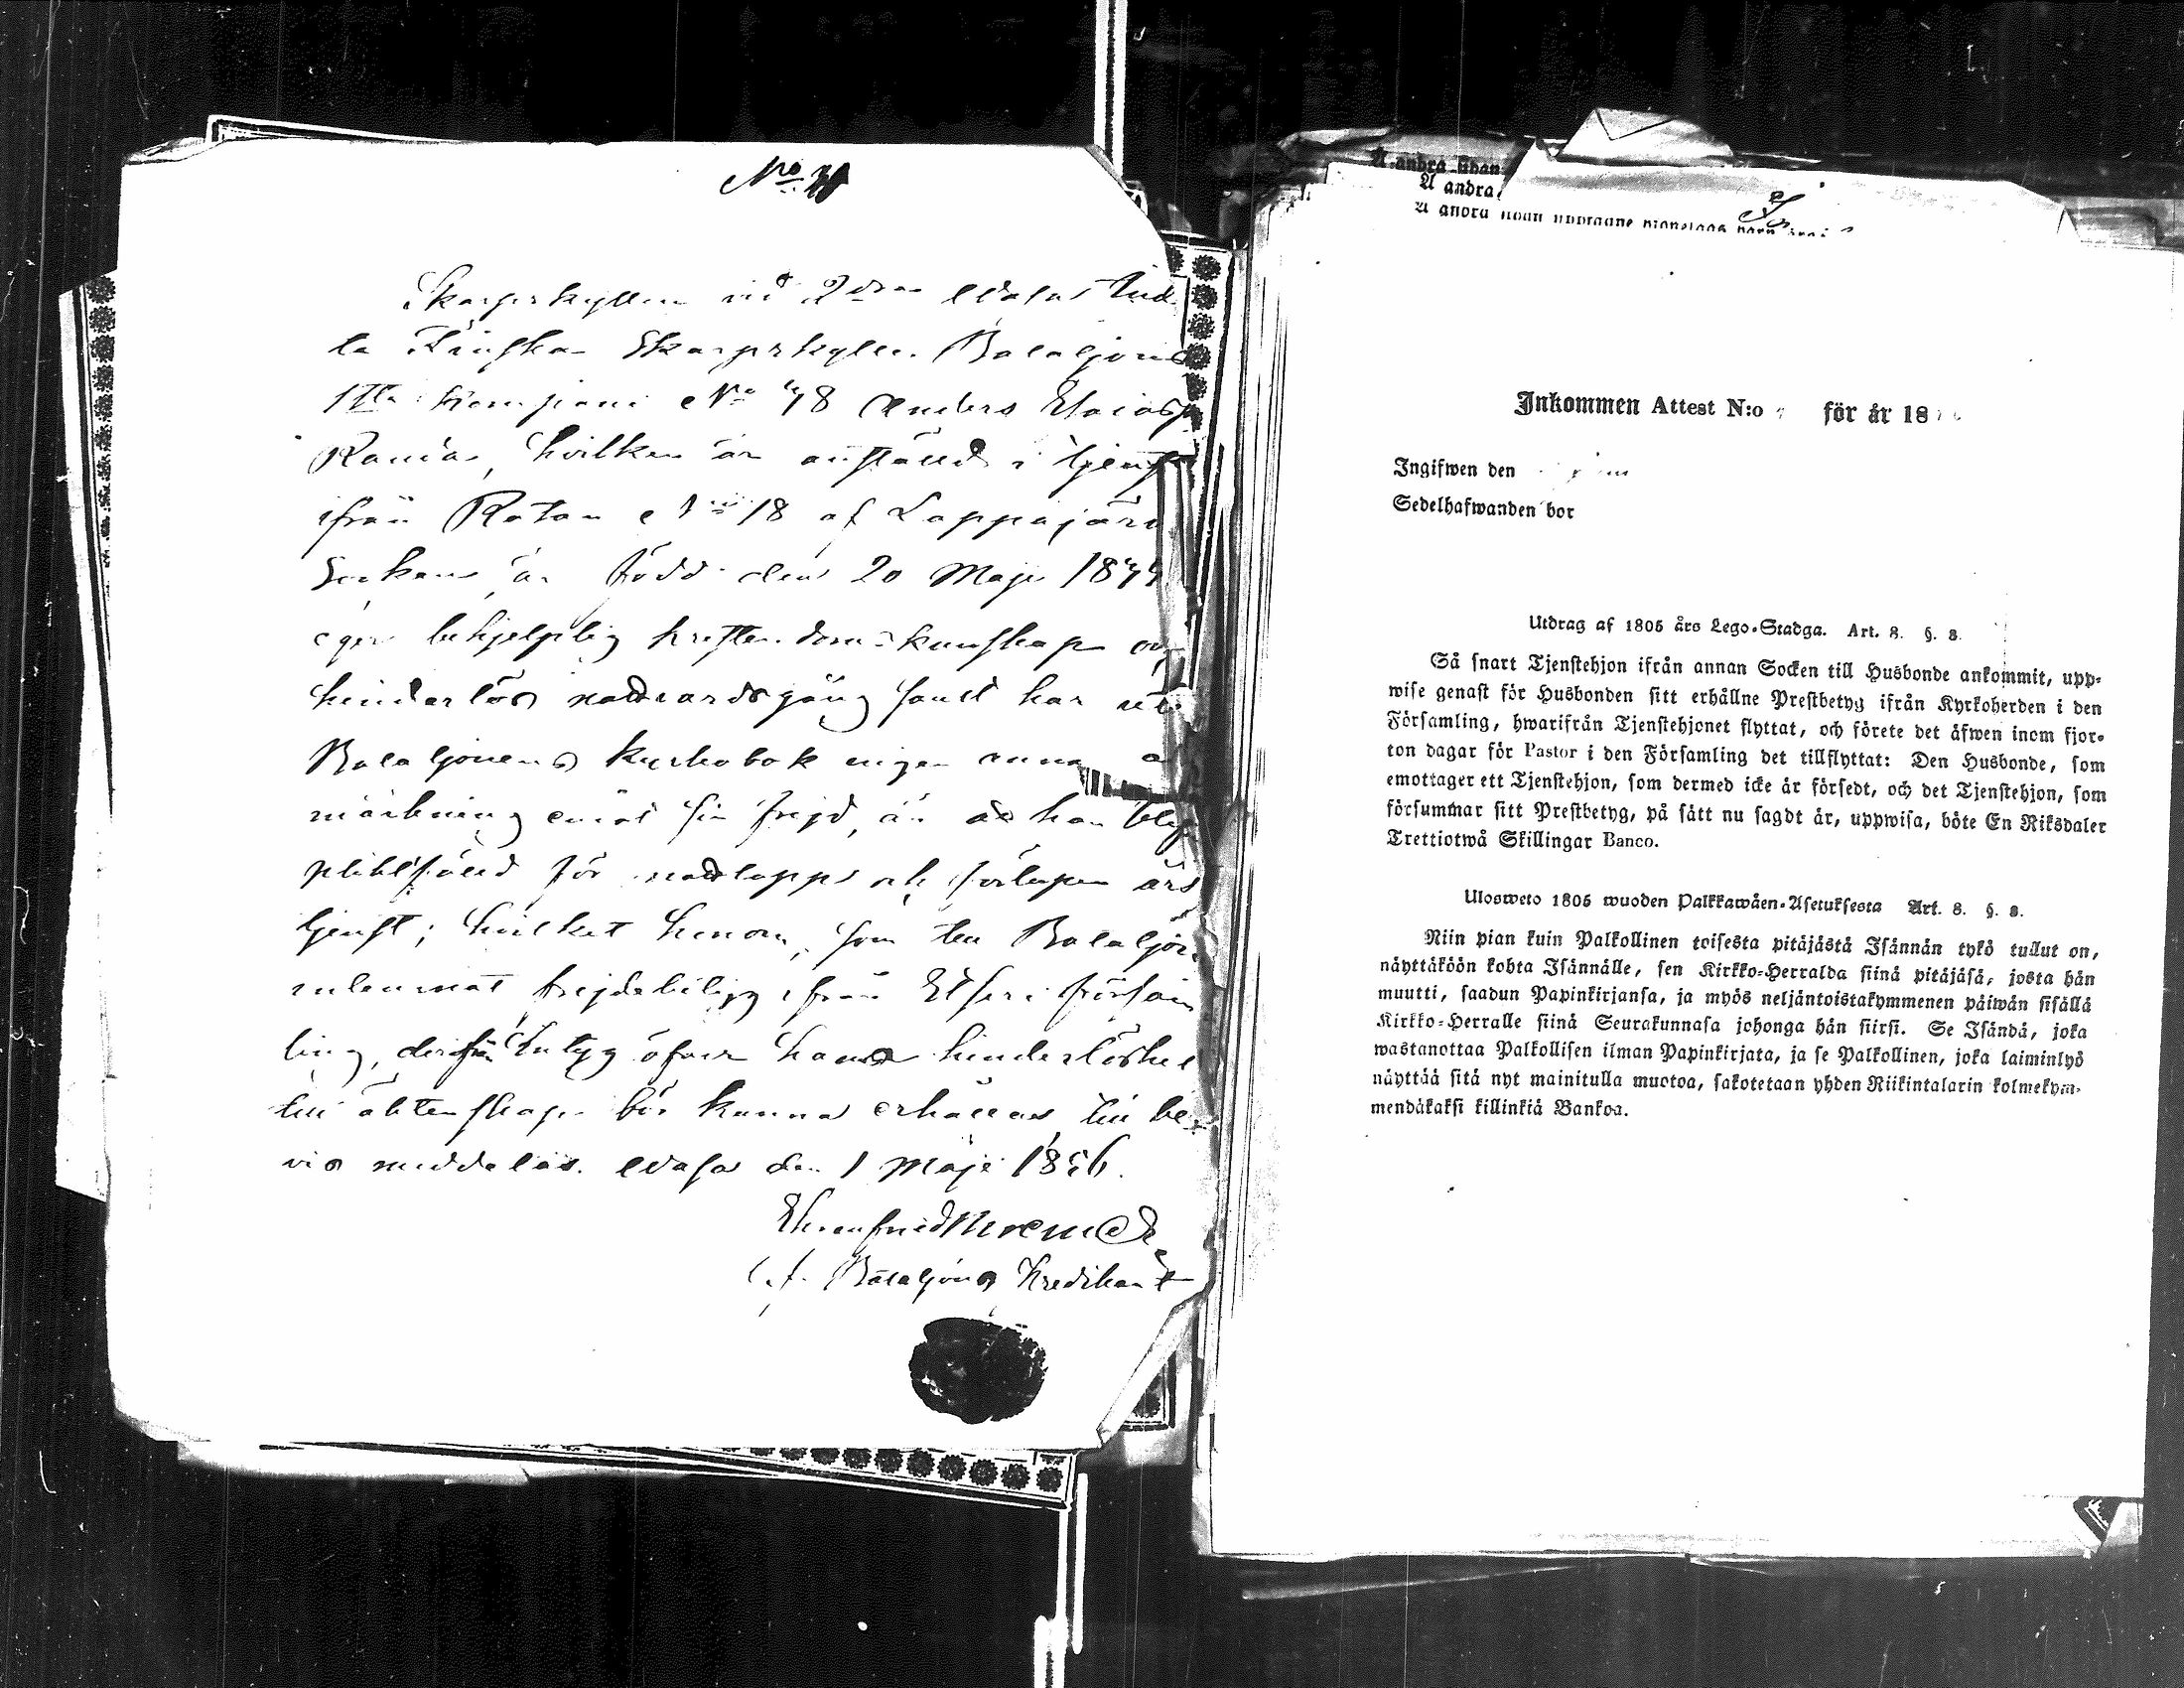 No
Skarpskytten vid 2dra Wasa Indel
ta Finska Skarpskytte Bataljons
1sta Kompani No 48 Anders Elias
Rania, hvilken är anstäld i tjenst
ifrån Rotan No 18 af Lappajärvi
Socken, är född den 20 Maji 18
eger behjelplig kristendoms kunskap och
hinderlös nattvardsgång samt har uti
Bataljonens kyrkobok ingen anna
märkning emot sin frejd, än at han
pliktfäld för och årstjenst
; hvilket honom, som till Bataljon
frejdebetyg ifrån Etseri försam
ling, intyg öfver hans hinderlöshet
till äktenskap bör kunna erhållas, till be
vis meddelas. Wasa den 1 Maji 1856.
Ehrenfried
t.f. Bataljons Predikant
A andra sidan
A andra
A andra sidan uppragne
Inkommen Attest N:o för år 18
Ingifwen den
Sedelhafwanden bor
Utdrag af 1805 års Lego-Stadga. Art. 8. §. 8.
Så snart Tjenstehjon ifrån annan Socken till Husbonde ankommit, upp-
wise genast för Husbonden sitt erhållne Prestbetyg ifrån Kyrkoherden i den
Församling, hwarifrån Tjenstehjonet flyttat, och förete det äfwen inom fjor-
ton dagar för Pastor i den Församling det tillflyttat: Den Husbonde, som
emottager ett Tjenstehjon, som dermed icke är försedt, och det Tjenstehjon, som
försummar sitt Prestbetyg, på sätt nu sagdt är, uppwisa, böte En Riksdaler
Trettiotwå Skillingar Banco.
Ulosweto 1805 wuoden Palkkawäen-Asetuksesta Art. 8. §. 8.
Niin pian kuin Palkollinen toisesta pitäjästä Isännän tykö tullut on,
näyttäköön kohta Isännälle, sen Kirkko-Herralda siinä pitäjäsä, josta hän
muutti, saadun Papinkirjansa, ja myös neljäntoistakymmenen päiwän sisällä
Kirkko-Herralle siinä Seurakunnasa johonga hän siirsi. Se Isändä, joka
wastanottaa Palkollisen ilman Papinkirjata, ja se Palkollinen, joka laiminlyö
näyttää sitä nyt mainitulla muotoa, sakotetaan yhden Riikintalarin kolmekym-
mendäkaksi killinkiä Bankoa.